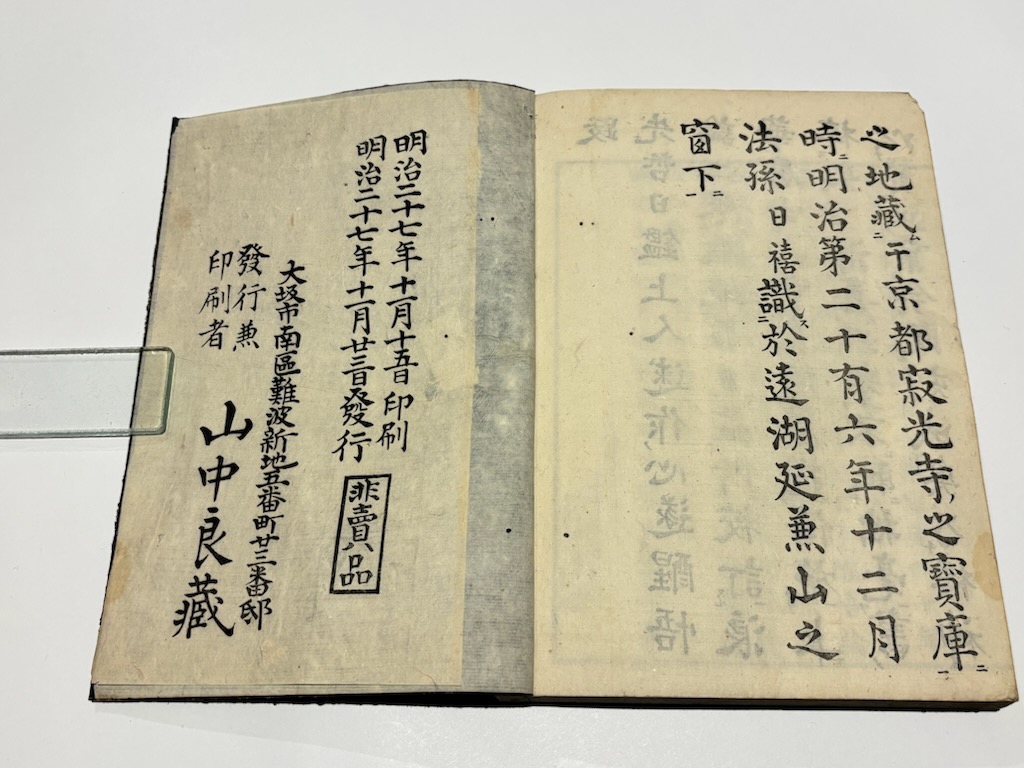 之地藏ム二于京都寂光寺之寶庫一
時二明治第二十有六年十二月
法孫日禧識ス二於遠湖延兼山之
窗下二一
明治二十七年十一月十五日印刷
明治二十七年十一月廿三日發行
非賣品
大坂市南區難波新地五番町廿三番邸
發行兼
印刷者
山中良藏